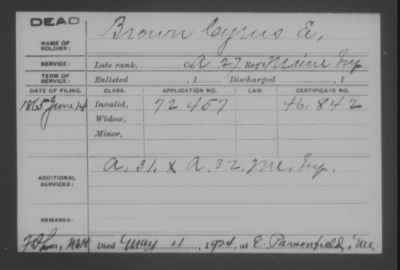 DEAD
NAME OF SOLDIER: Brown Cyrus E.
SERVICE: Late rank, Co A 27 Reg't Maine Inf
TERM OF SERVICE: Enlisted , 1 Discharged , 1
DATE OF FILING. CLASS. APPLICATION NO. LAW. CERTIFICATE NO.
1865 June 14 Invalid, 72 457 46.842
Widow,
Minor,
ADDITIONAL SERVICES: A. 31. & A. 32. Me. Inf.
REMARKS:
Died May 11, 1924, at E. Parsonfield, Me.